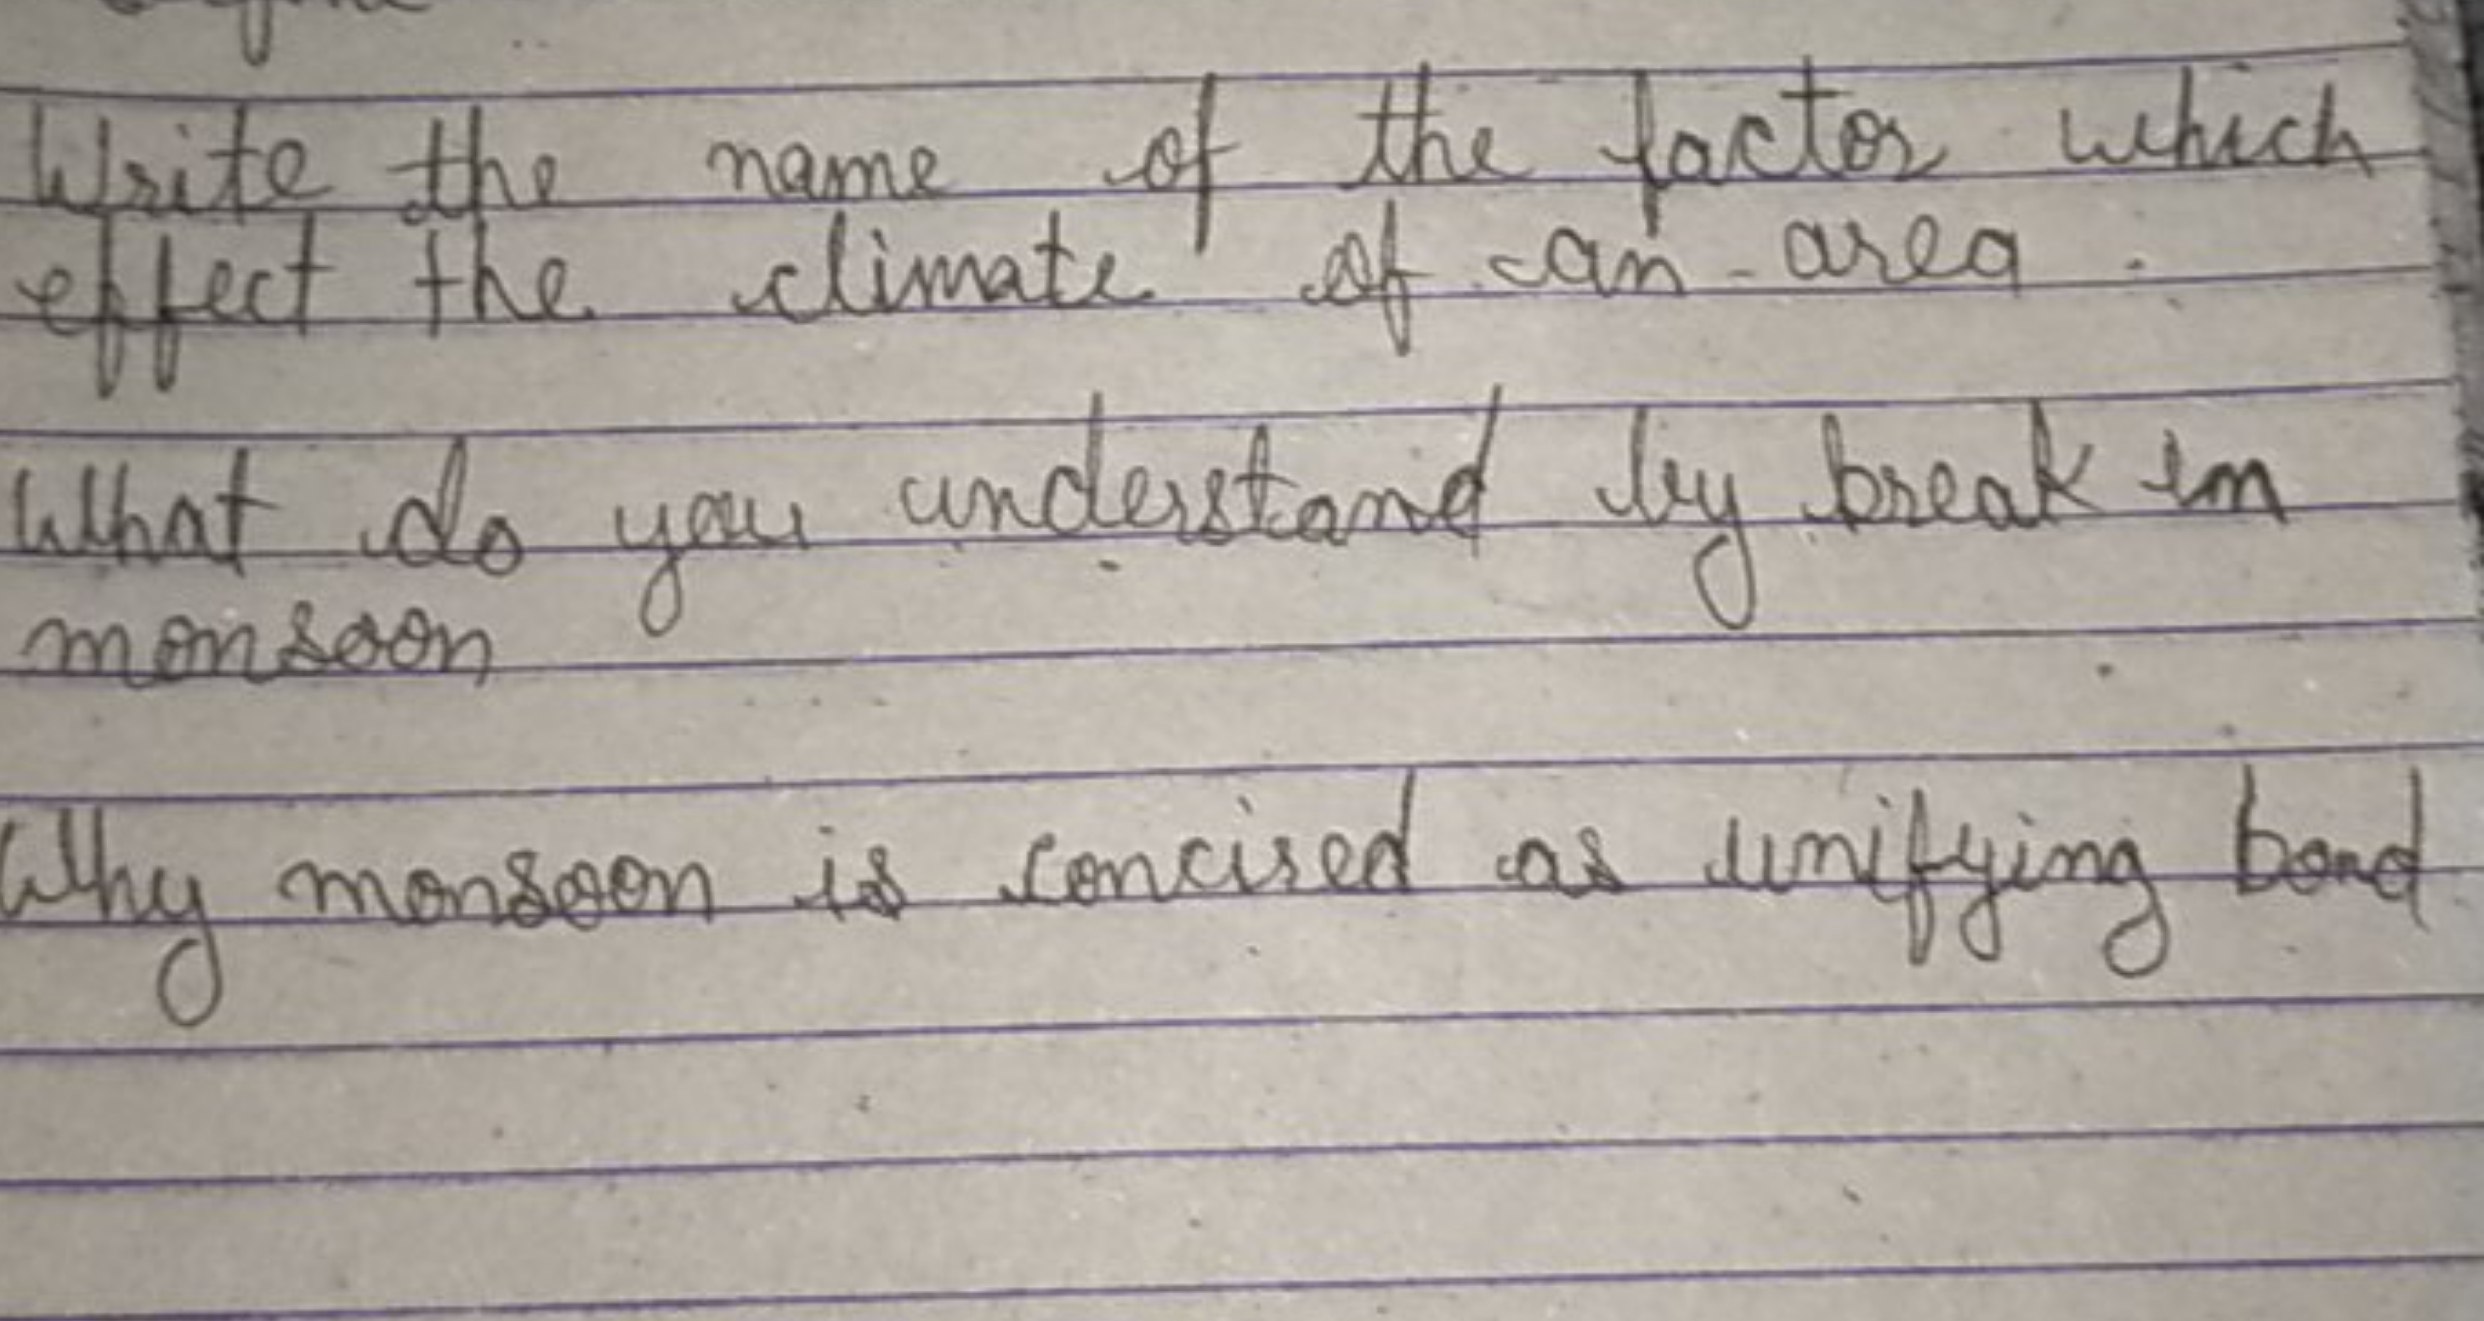 Write the name of the factor which
effect the climate of an area.
What do you understand by break in
monsoon
Why monsoon is concised as unifying bond